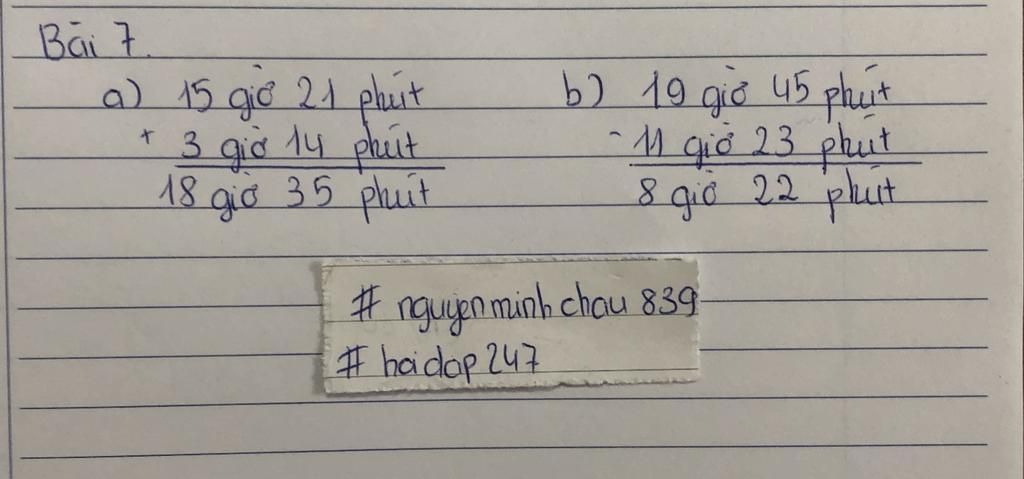 Bài 7.
a) 15 giờ 21 phút
+ 3 giờ 14 phút
18 giờ 35 phút
b) 19 giờ 45 phút
- 11 giờ 23 phút
8 giờ 22 phút
# nguyenminhchau839
# hoidap247